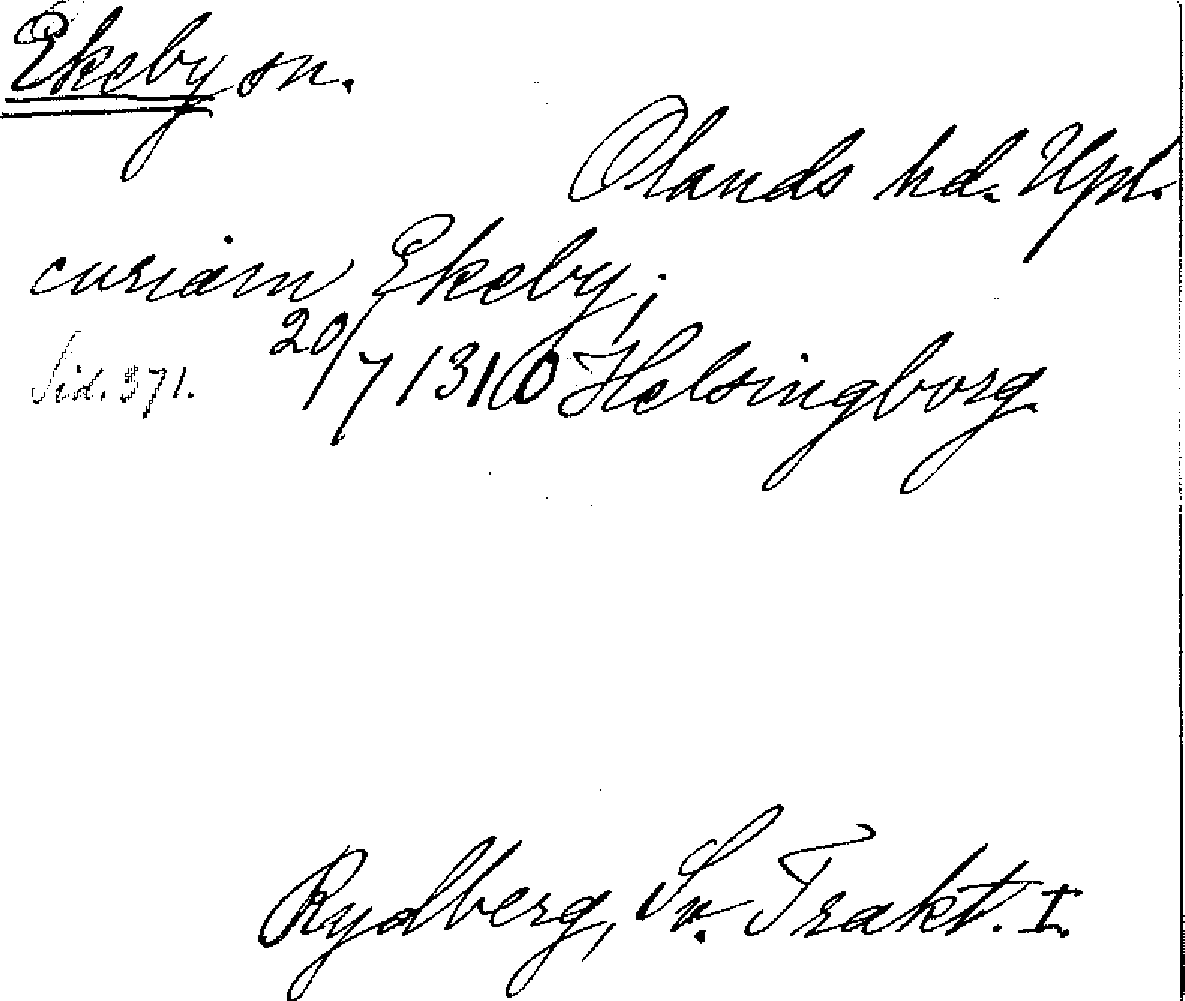 Ekeby sn.
Olands hd. Upl.
curiam Ekeby;
Sid. 371. 20/7 1310 Helsingborg.
Rydberg, Sv. Trakt. I.